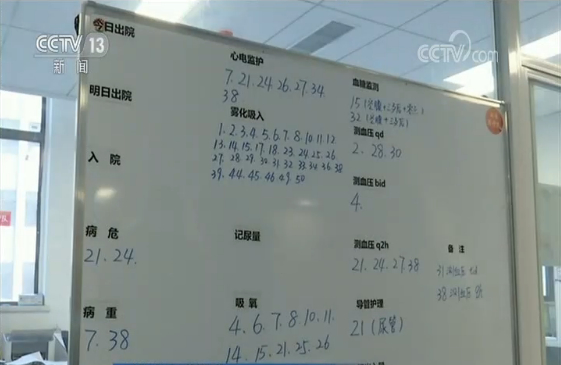 CCTV 13
新闻
CCTV.com
今日出院
明日出院
入 院
病 危
21.24.
病 重
7.38
心电监护
7.21.24.26.27.34.
38
雾化吸入
1.2.3.4.5.6.7.8.10.11.12
13.14.15.17.18.23.24.25.26
27.28.29.30.31.32.33.34.36.38
39.44.45.46.49.50
记尿量
吸 氧
4.6.7.8.10.11.
14.15.21.25.26
血糖监测
15
32
测血压 qd
2.28.30
测血压 bid
4.
测血压 q2h
21.24.27.38
导管护理
21(尿管)
备 注
31测血压 tid
38测血压